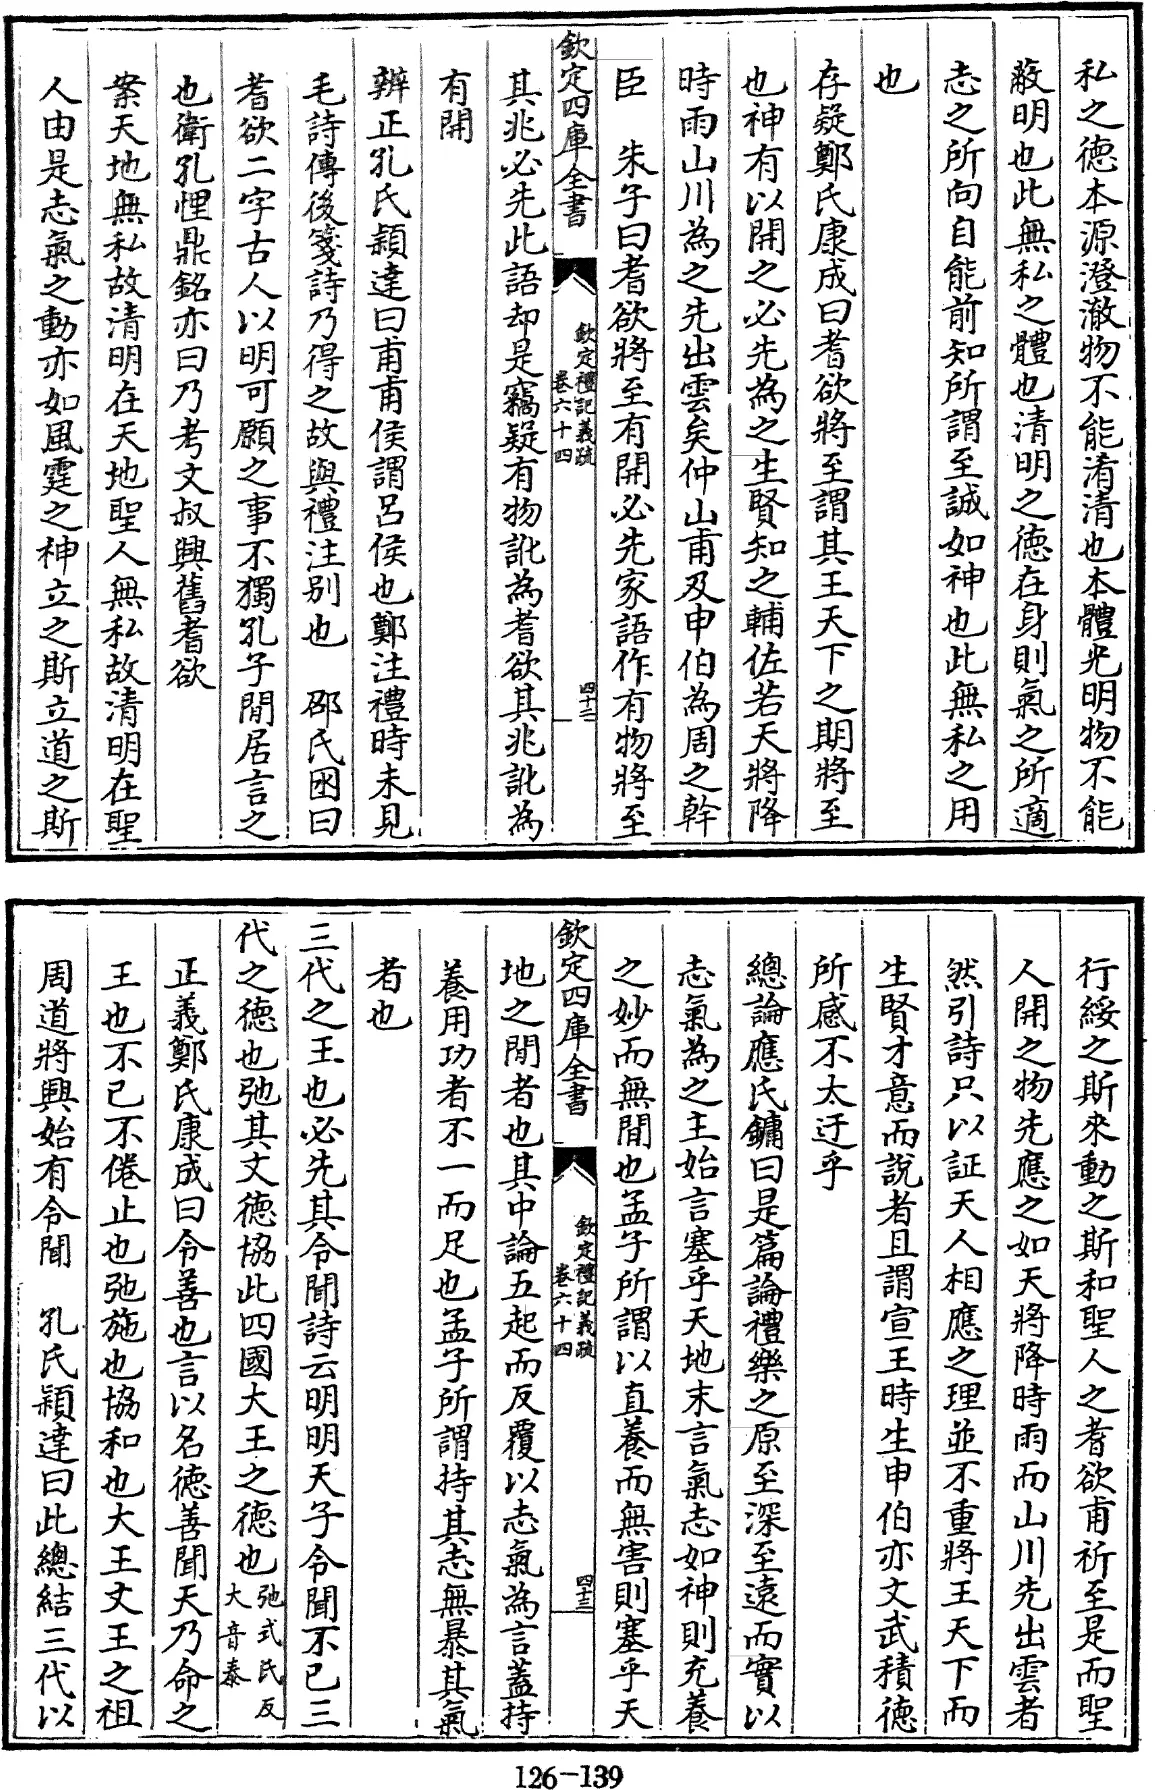 私之德本源澄澈物不能淆清也本體光明物不能
蔽明也此無私之體也清明之德在身則氣之所適
志之所向自能前知所謂至誠如神也此無私之用
也
存疑鄭氏康成曰耆欲將至謂其王天下之期將至
也神有以開之必先為之生賢知之輔佐若天將降
時雨山川為之先出雲矣仲山甫及申伯為周之幹
臣　朱子曰耆欲將至有開必先家語作有物將至
欽定四庫全書
欽定禮記義疏
卷六十四
四十二
其兆必先此語却是竊疑有物訛為耆欲其兆訛為
有開
辨正孔氏穎達曰甫甫侯謂呂侯也鄭注禮時未見
毛詩傳後箋詩乃得之故與禮注别也　邵氏囦曰
耆欲二字古人以明可願之事不獨孔子閒居言之
也衛孔悝鼎銘亦曰乃考文叔興舊耆欲
案天地無私故清明在天地聖人無私故清明在聖
人由是志氣之動亦如風霆之神立之斯立道之斯
行綏之斯來動之斯和聖人之耆欲甫祈至是而聖
人開之物先應之如天將降時雨而山川先出雲者
然引詩只以証天人相應之理並不重將王天下而
生賢才意而說者且謂宣王時生申伯亦文武積德
所感不太迂乎
總論應氏鏞曰是篇論禮樂之原至深至遠而實以
志氣為之主始言塞乎天地末言氣志如神則充養
之妙而無間也孟子所謂以直養而無害則塞乎天
欽定四庫全書
欽定禮記義疏
卷六十四
四十三
地之閒者也其中論五起而反覆以志氣為言蓋持
養用功者不一而足也孟子所謂持其志無暴其氣
者也
三代之王也必先其令聞詩云明明天子令聞不已三
代之德也弛其文德協此四國大王之德也弛式氏反大音泰
正義鄭氏康成曰令善也言以名德善聞天乃命之
王也不已不倦止也弛施也協和也大王文王之祖
周道將興始有令聞　孔氏穎達曰此總結三代以
126-139